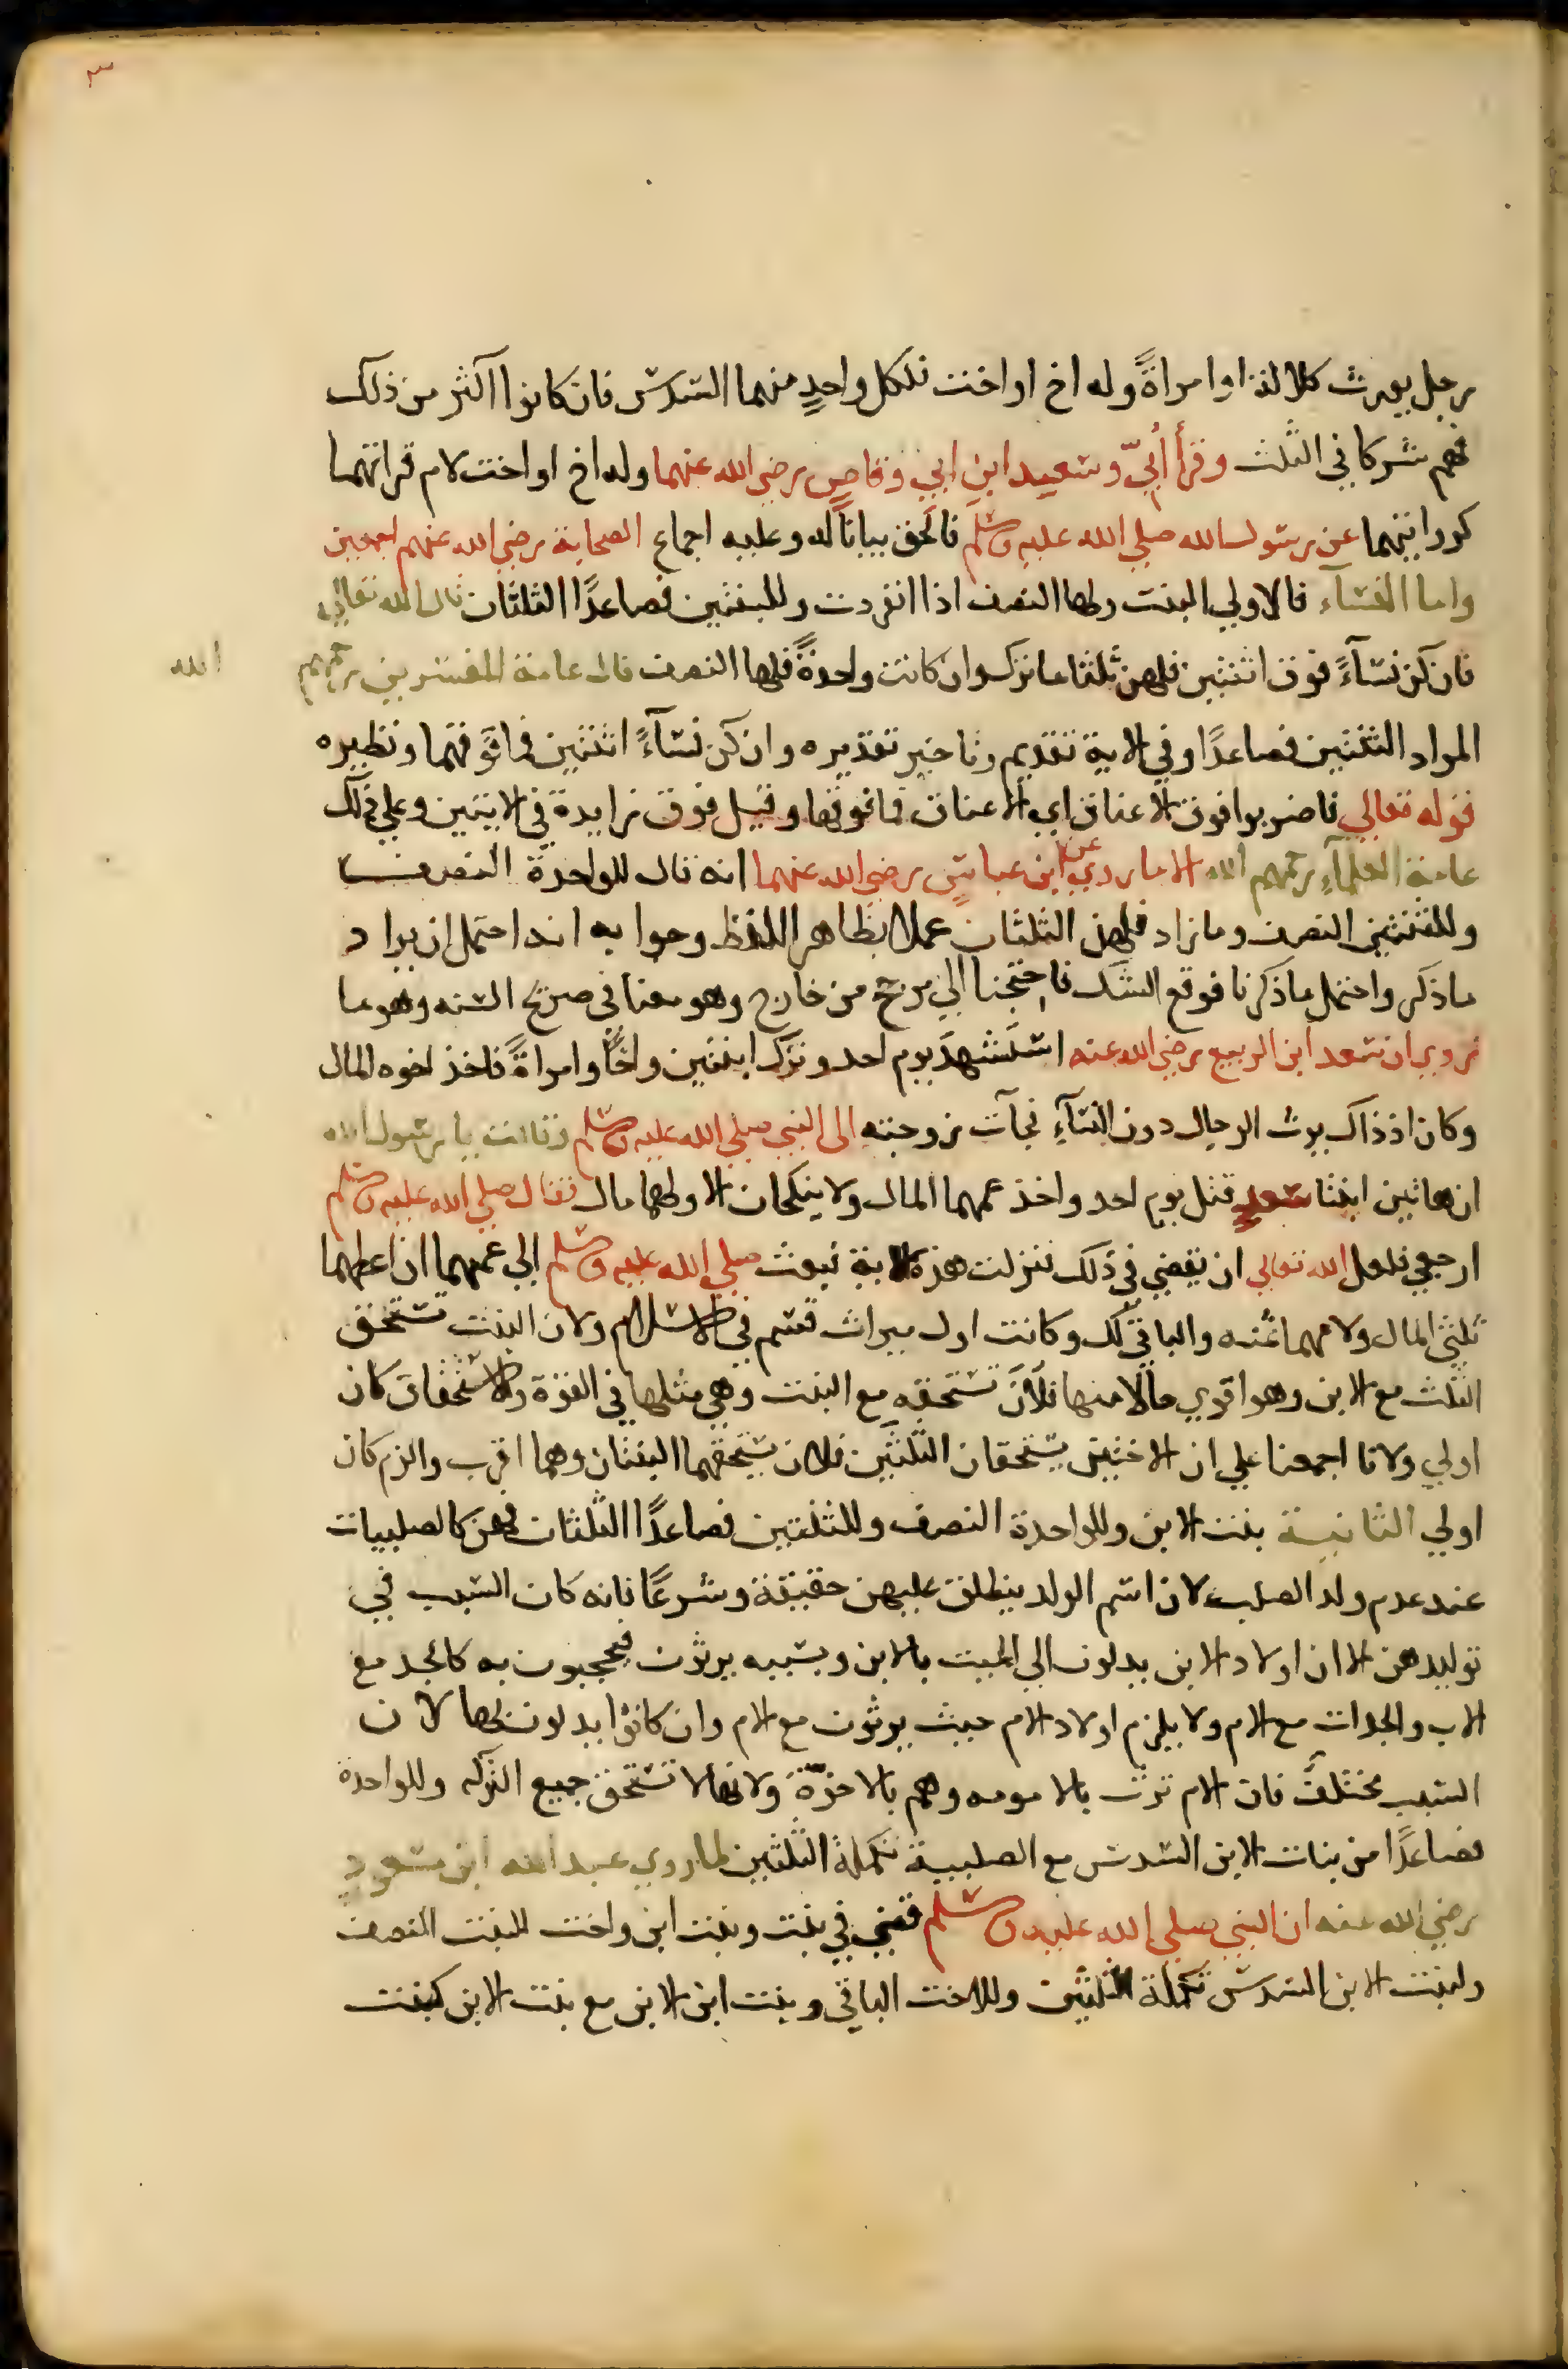 ٣
رجل يورث كلالة او امراةً وله اخ او اخت فلكل واحدٍ منهما السدس فان كانوا اكثر من ذلك
فهم شركا في الثلث وقرأ أُبيّ وسعيد ابن ابي وقاصٍ رضي الله عنهما وله اخ او اخت لام قراتهما
كروايتهما عن رسول الله صلي الله عليه وسلم فالحق بياناً له وعليه اجماع الصحابة رضي الله عنهم اجمعين
واما النسآء فالاولي البنت ولها النصف اذا انفردت وللبنتين فصاعدًا الثلثان قال الله تعالي
فان كن نسآءً فوق اثنتين فلهن ثلثا ما ترك وان كانت واحدةً فلها النصف قال عامة المفسرين رحمهم الله
المراد الثنتين فصاعدًا وفي الاية تقديم وتاخير تقديره وان كن نسآءً اثنتين فما فوقهما ونظيره
قوله تعالي فاضربوا فوق الاعناق اي الاعناق فما فوقها وقيل فوق زايدة في الايتين وعلي ذلك
عامة العلمآءِ رحمهم الله الا ما روي عن ابن عباسٍ رضي الله عنهما انه قال للواحدة النصف
وللثنتين النصف وما زاد فلهن الثلثان عملا بظاهر اللفظ وجوابه انه احتمل ان يراد
ما ذكر واحتمل ما ذكرنا فوقع الشك فاحتجنا الي مرجح من خارج وهو معنا في صريح السنه وهو ما
روي ان سعد ابن الربيع رضي الله عنه استشهد يوم احد وترك ابنتين واخًا وامراةً فاخذ اخوه المال
وكان اذ ذاك يرث الرجال دون النسآءِ فجآت زوجته الي النبي صلي الله عليه وسلم وقالت يا رسول الله
ان هاتين ابنتا سعدٍ قتل يوم احد واخذ عمهما المال ولا ينكحان الا ولهما مال فقال صلي الله عليه وسلم
ارجعي فلعل الله تعالي ان يقضي في ذلك فنزلت هذه الاية فبعث صلي الله عليه وسلم الي عمهما ان اعطهما
ثلثي المال ولامهما ثمنه والباقي لك وكانت اول ميراث قسم في الاسلام ولان البنت تستحق
الثلث مع الابن وهو اقوي حالًا منها فلان تستحقه مع البنت وهي مثلها في القوة والاستحقاق كان
اولي ولانا اجمعنا علي ان الاختين يستحقان الثلثين فلان يستحقهما البنتان وهما اقرب والزم كان
اولي الثانية بنت الابن وللواحدة النصف وللثنتين فصاعدًا الثلثان فهن كالصلبيات
عند عدم ولد الصلب لان اسم الولد ينطلق عليهن حقيقة وشرعًا فانه كان السبب في
توليدهن الا ان اولاد الابن يدلون الي الميت بالابن وبسببه يرثون فيحجبون به كالجد مع
الاب والجدات مع الام ولا يلزم اولاد الام حيث يرثون مع الام وان كانوا يدلون بها لان
السبب مختلف فان الام ترث بالامومه وهم بالاخوّة ولانها لا تستحق جميع التركه وللواحدة
فصاعدًا من بنات الابن السدس مع الصلبية تكملة الثلثين لما روي عبد الله ابن مسعودٍ
رضي الله عنه ان النبي صلي الله عليه وسلم قضي في بنت وبنت ابن واخت للبنت النصف
ولبنت الابن السدس تكملة الثلثين وللاخت الباقي وبنت ابن الابن مع بنت الابن كبنت